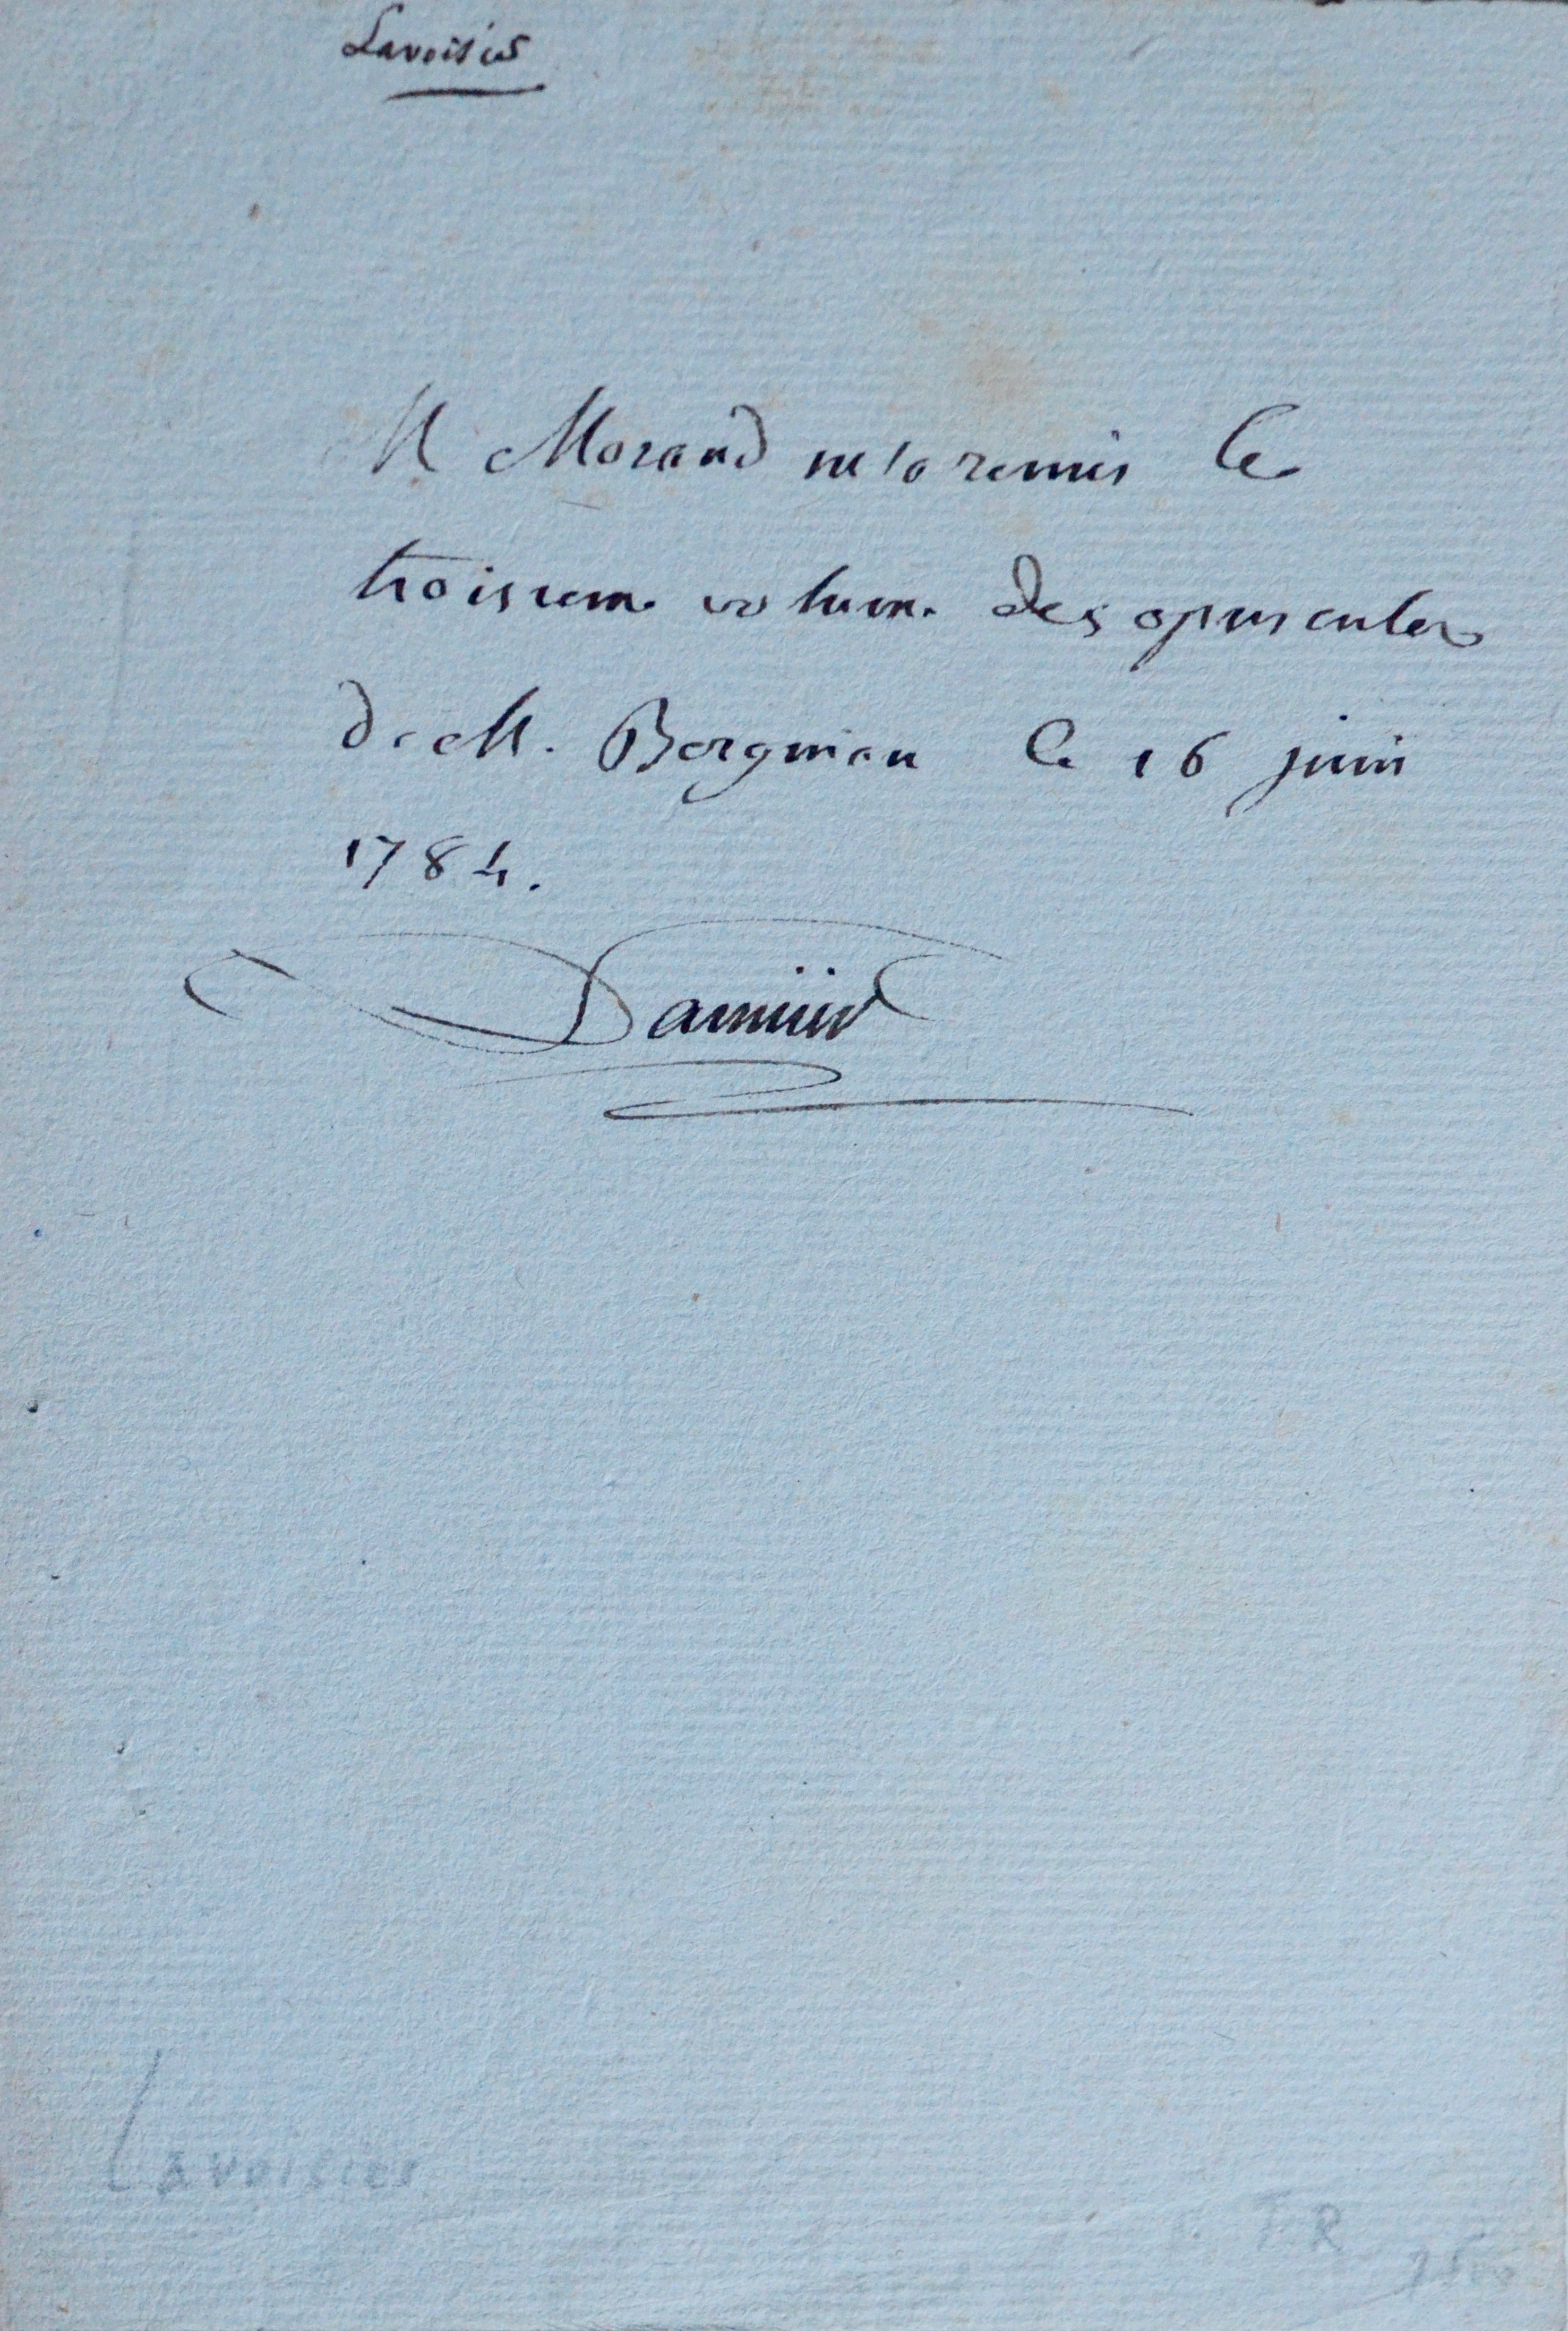 Lavoisier
M Morand m'a remis le
troisieme volume des opuscules
de M. Bergman le 16 juin
1784.
Lavoisier
T.R